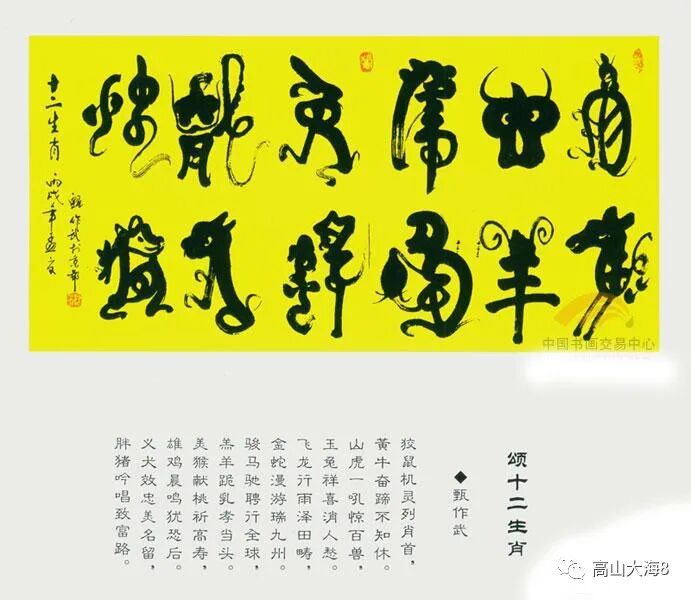 鼠牛虎兔龍蛇
馬羊猴鷄狗猪
十二生肖 丙戌年
甄作武于京
中国书画交易中心
颂十二生肖
◆甄作武
狡鼠机灵列肖首，
黄牛奋蹄不知休。
山虎一吼惊百兽，
玉兔祥喜消人愁。
飞龙行雨泽田畴，
金蛇漫游瑞九州。
骏马驰聘行全球，
羔羊跪乳孝当头。
美猴献桃祈高寿，
雄鸡晨鸣犹恐后。
义犬效忠美名留，
胖猪吟唱致富路。
高山大海8